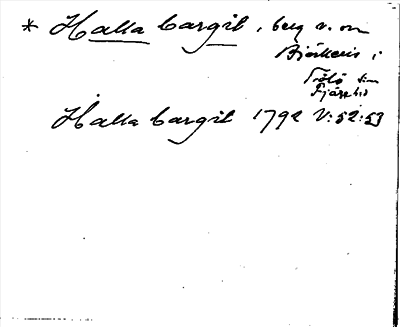 * Halla bargit, berg v. om
Björkeris i
Tölö sn
Fjäre hd
Halla bargit 1792 V:52:53